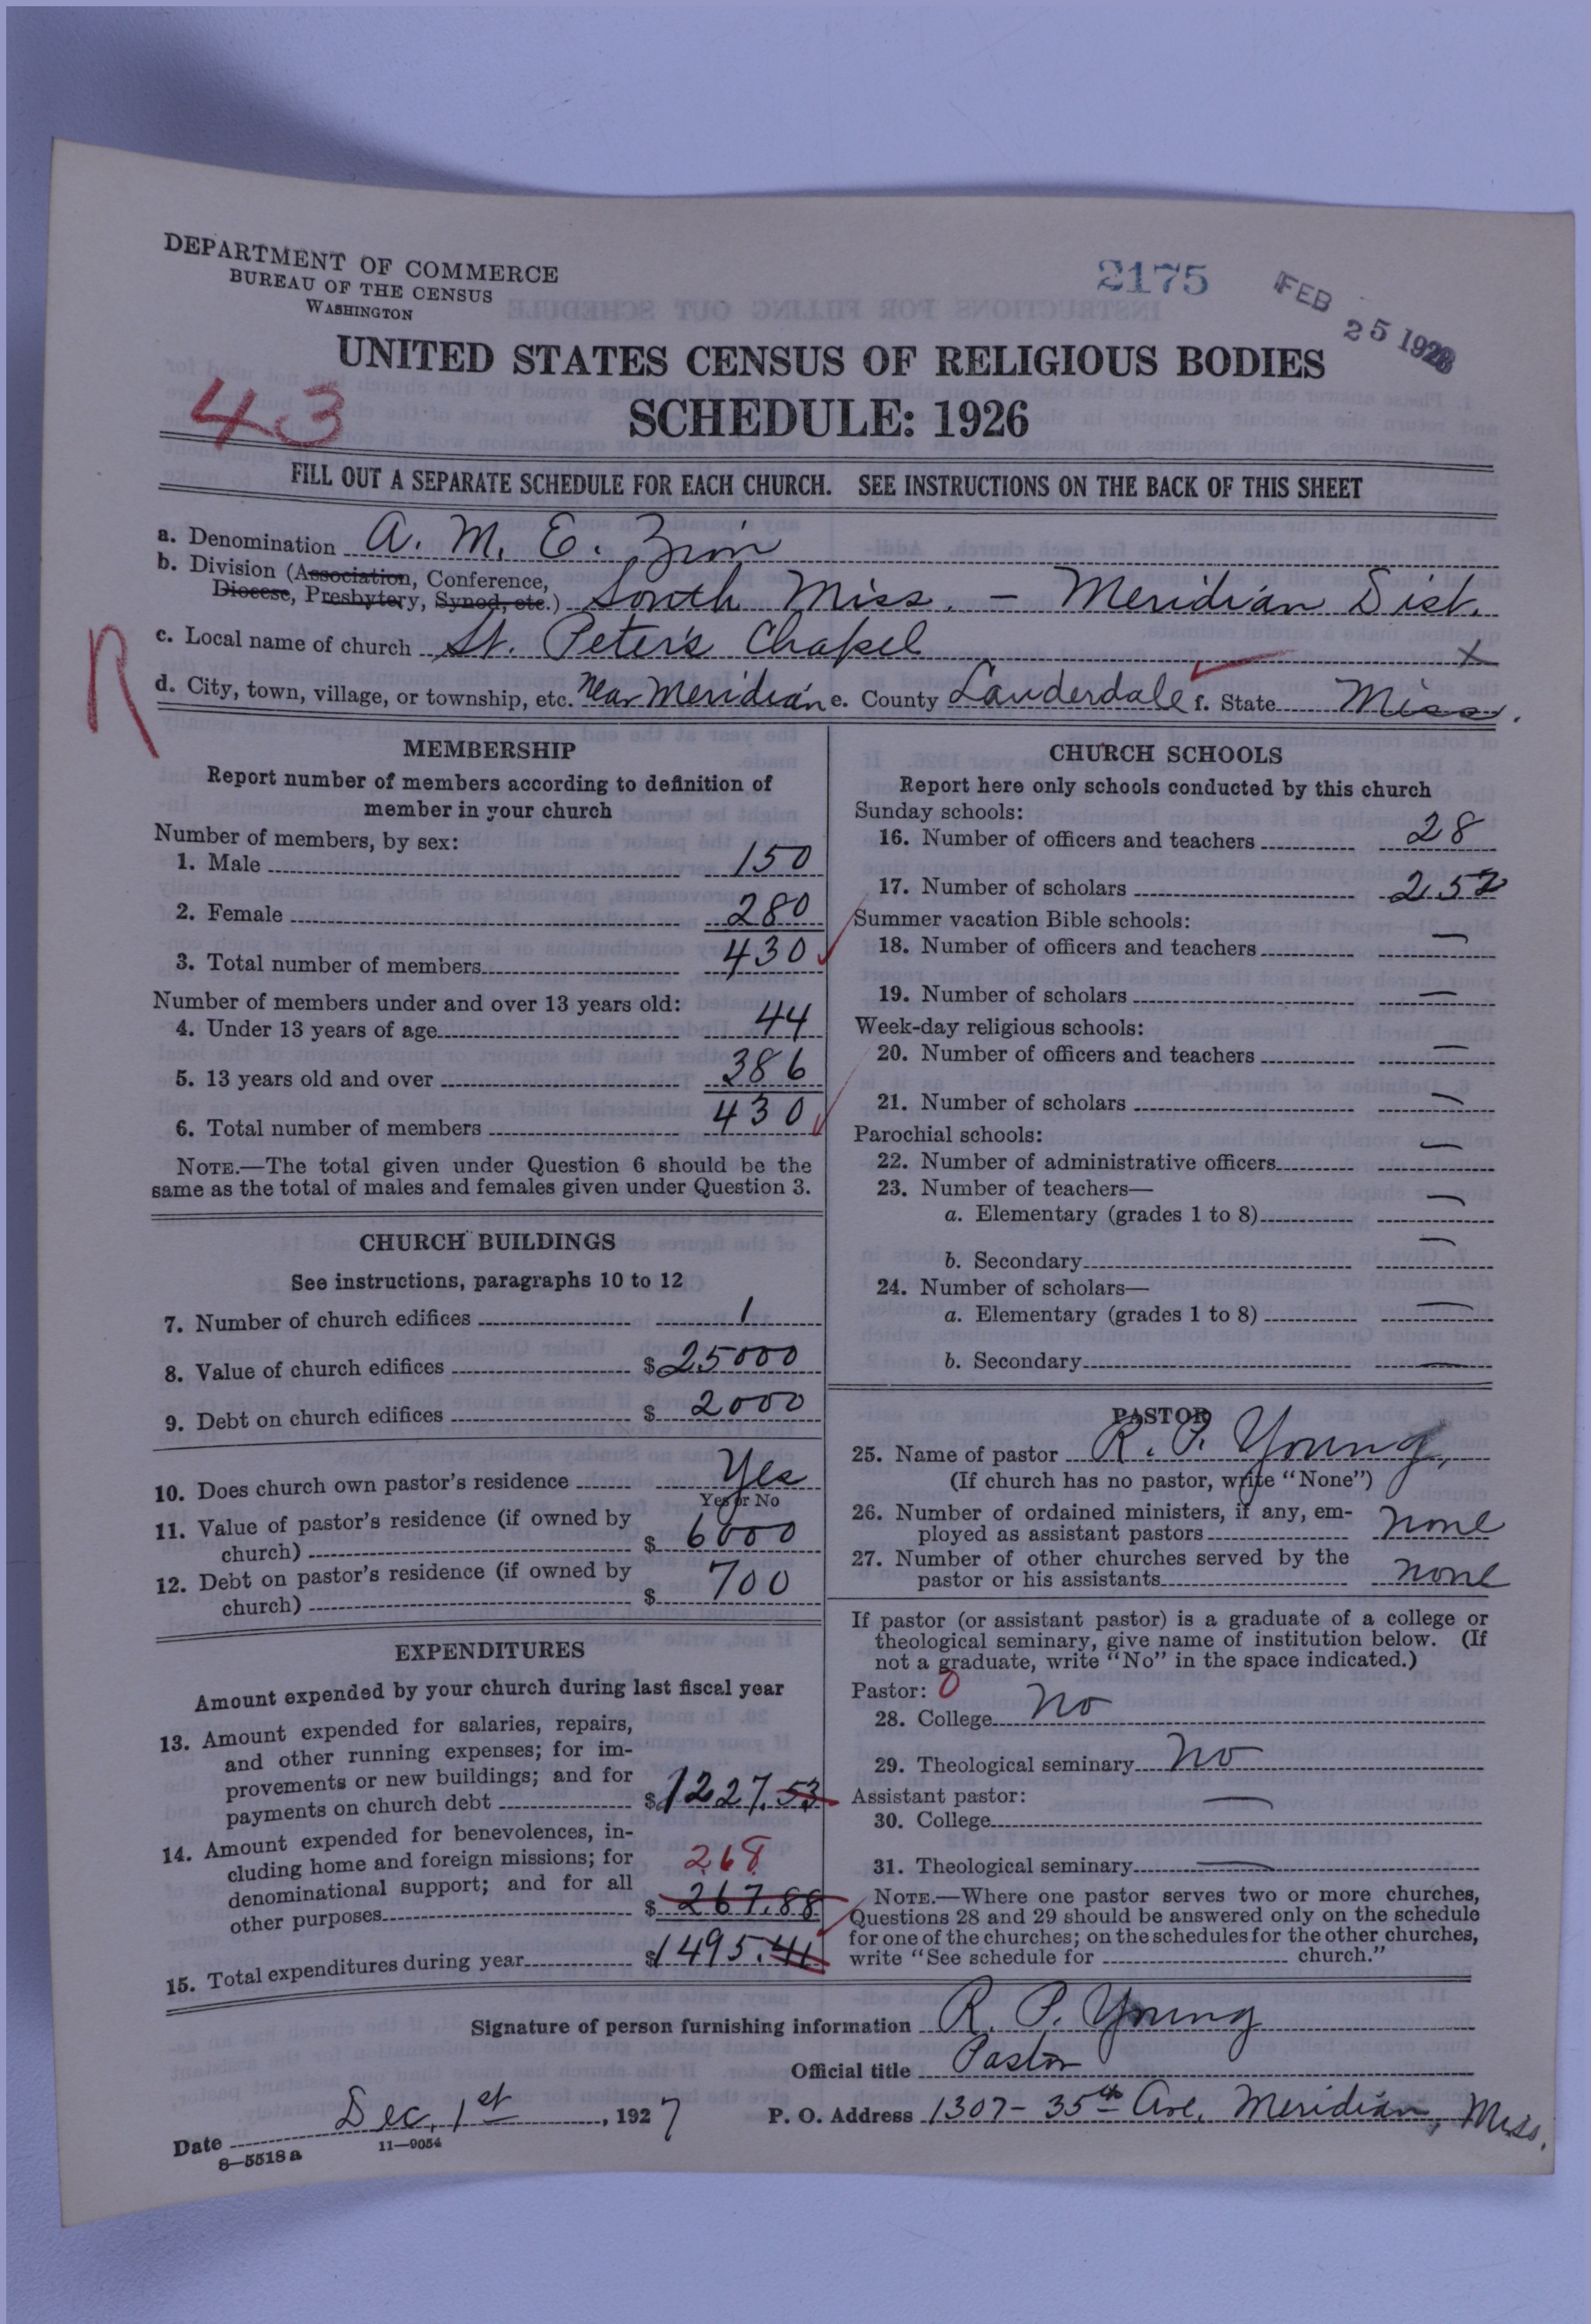 DEPARTMENT OF COMMERCE
BUREAU OF THE CENSUS
WASHINGTON
2175
FEB 25 1928
UNITED STATES CENSUS OF RELIGIOUS BODIES
43
SCHEDULE: 1926
FILL OUT A SEPARATE SCHEDULE FOR EACH CHURCH. SEE INSTRUCTIONS ON THE BACK OF THIS SHEET
a. Denomination A. M. E. Zion
b. Division (Association, Conference,
Diocese, Presbytery, Synod, etc.) South Miss. - Meridian Dist.
R
c. Local name of church St. Peter's Chapel X
d. City, town, village, or township, etc. Near Meridian e. County Lauderdale f. State Miss.
MEMBERSHIP
Report number of members according to definition of
member in your church
Number of members, by sex:
1. Male 150
2. Female 280
3. Total number of members 430
Number of members under and over 13 years old:
4. Under 13 years of age 44
5. 13 years old and over 386
6. Total number of members 430
NOTE.—The total given under Question 6 should be the
same as the total of males and females given under Question 3.
CHURCH BUILDINGS
See instructions, paragraphs 10 to 12
7. Number of church edifices 1
8. Value of church edifices $25000
9. Debt on church edifices $2000
10. Does church own pastor's residence Yes
Yes or No
11. Value of pastor's residence (if owned by
church) $6000
12. Debt on pastor's residence (if owned by
church) $700
EXPENDITURES
Amount expended by your church during last fiscal year
13. Amount expended for salaries, repairs,
and other running expenses; for im-
provements or new buildings; and for
payments on church debt $1227.53
14. Amount expended for benevolences, in-
cluding home and foreign missions; for
268
denominational support; and for all
other purposes $267.88
15. Total expenditures during year $1495.41
CHURCH SCHOOLS
Report here only schools conducted by this church
Sunday schools:
16. Number of officers and teachers 28
17. Number of scholars 252
Summer vacation Bible schools:
18. Number of officers and teachers —
19. Number of scholars —
Week-day religious schools:
20. Number of officers and teachers —
21. Number of scholars —
Parochial schools:
22. Number of administrative officers —
23. Number of teachers—
a. Elementary (grades 1 to 8) —
b. Secondary —
24. Number of scholars—
a. Elementary (grades 1 to 8) —
b. Secondary —
PASTOR
25. Name of pastor R. P. Young,
(If church has no pastor, write "None")
26. Number of ordained ministers, if any, em-
ployed as assistant pastors none
27. Number of other churches served by the
pastor or his assistants none
If pastor (or assistant pastor) is a graduate of a college or
theological seminary, give name of institution below. (If
not a graduate, write "No" in the space indicated.)
Pastor: 0
28. College No
29. Theological seminary No
Assistant pastor:
30. College —
31. Theological seminary —
NOTE.—Where one pastor serves two or more churches,
Questions 28 and 29 should be answered only on the schedule
for one of the churches; on the schedules for the other churches,
write "See schedule for church."
Signature of person furnishing information R. P. Young
Official title Pastor
Date Dec. 1st, 1927 P. O. Address 1307 - 35th Ave. Meridian, Miss.
8—5518a 11—9054